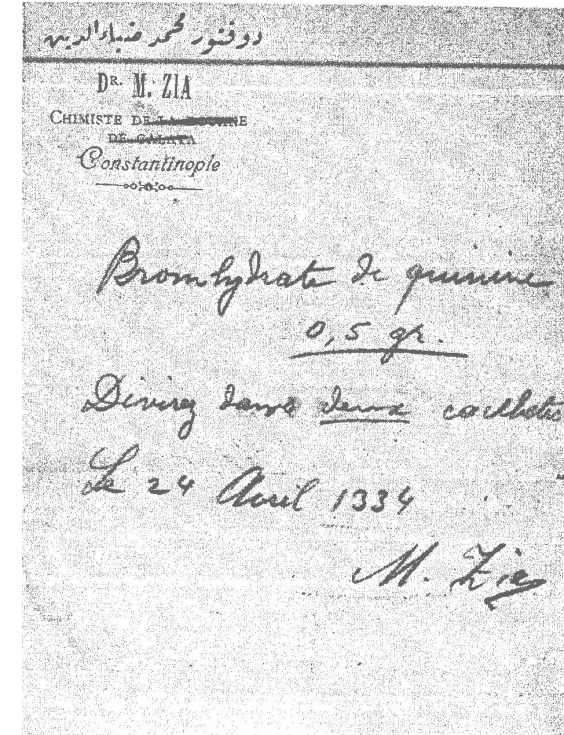 دوقتور محمد ضياءالدين
DR. M. ZIA
CHIMISTE DE LA DOUANE
DE GALATA
Constantinople
Bromhydrate de quinine
0,5 gr.
Divisez dans deux cachets
Le 24 Avril 1334
M. Zia